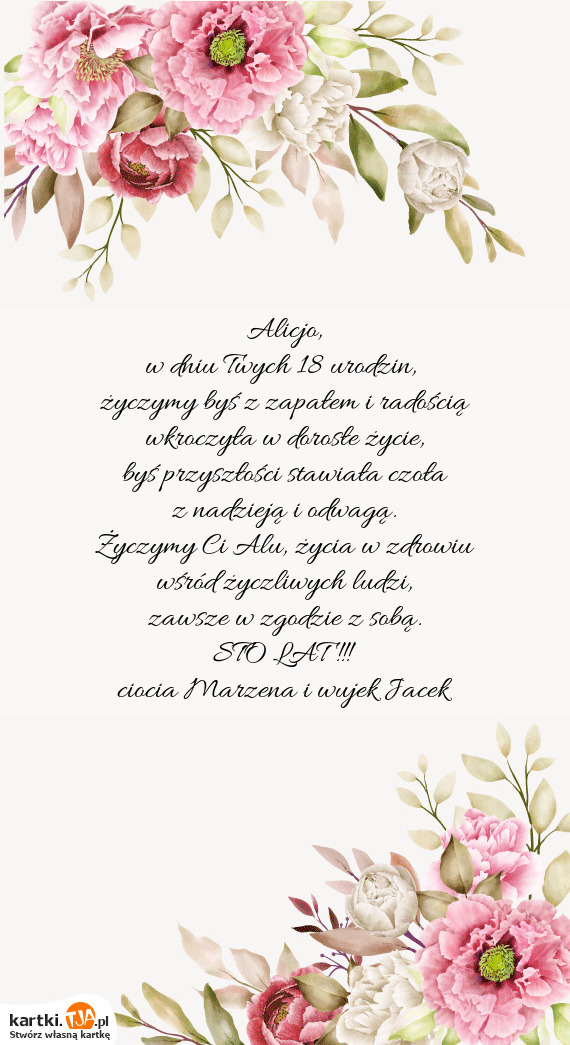 Alicjo,
w dniu Twych 18 urodzin,
życzymy byś z zapałem i radością
wkroczyła w dorosłe życie,
byś przyszłości stawiała czoła
z nadzieją i odwagą.
Życzymy Ci Alu, życia w zdrowiu
wśród życzliwych ludzi,
zawsze w zgodzie z sobą.
STO LAT !!!
ciocia Marzena i wujek Jacek
kartki.TJA.pl
Stwórz własną kartkę